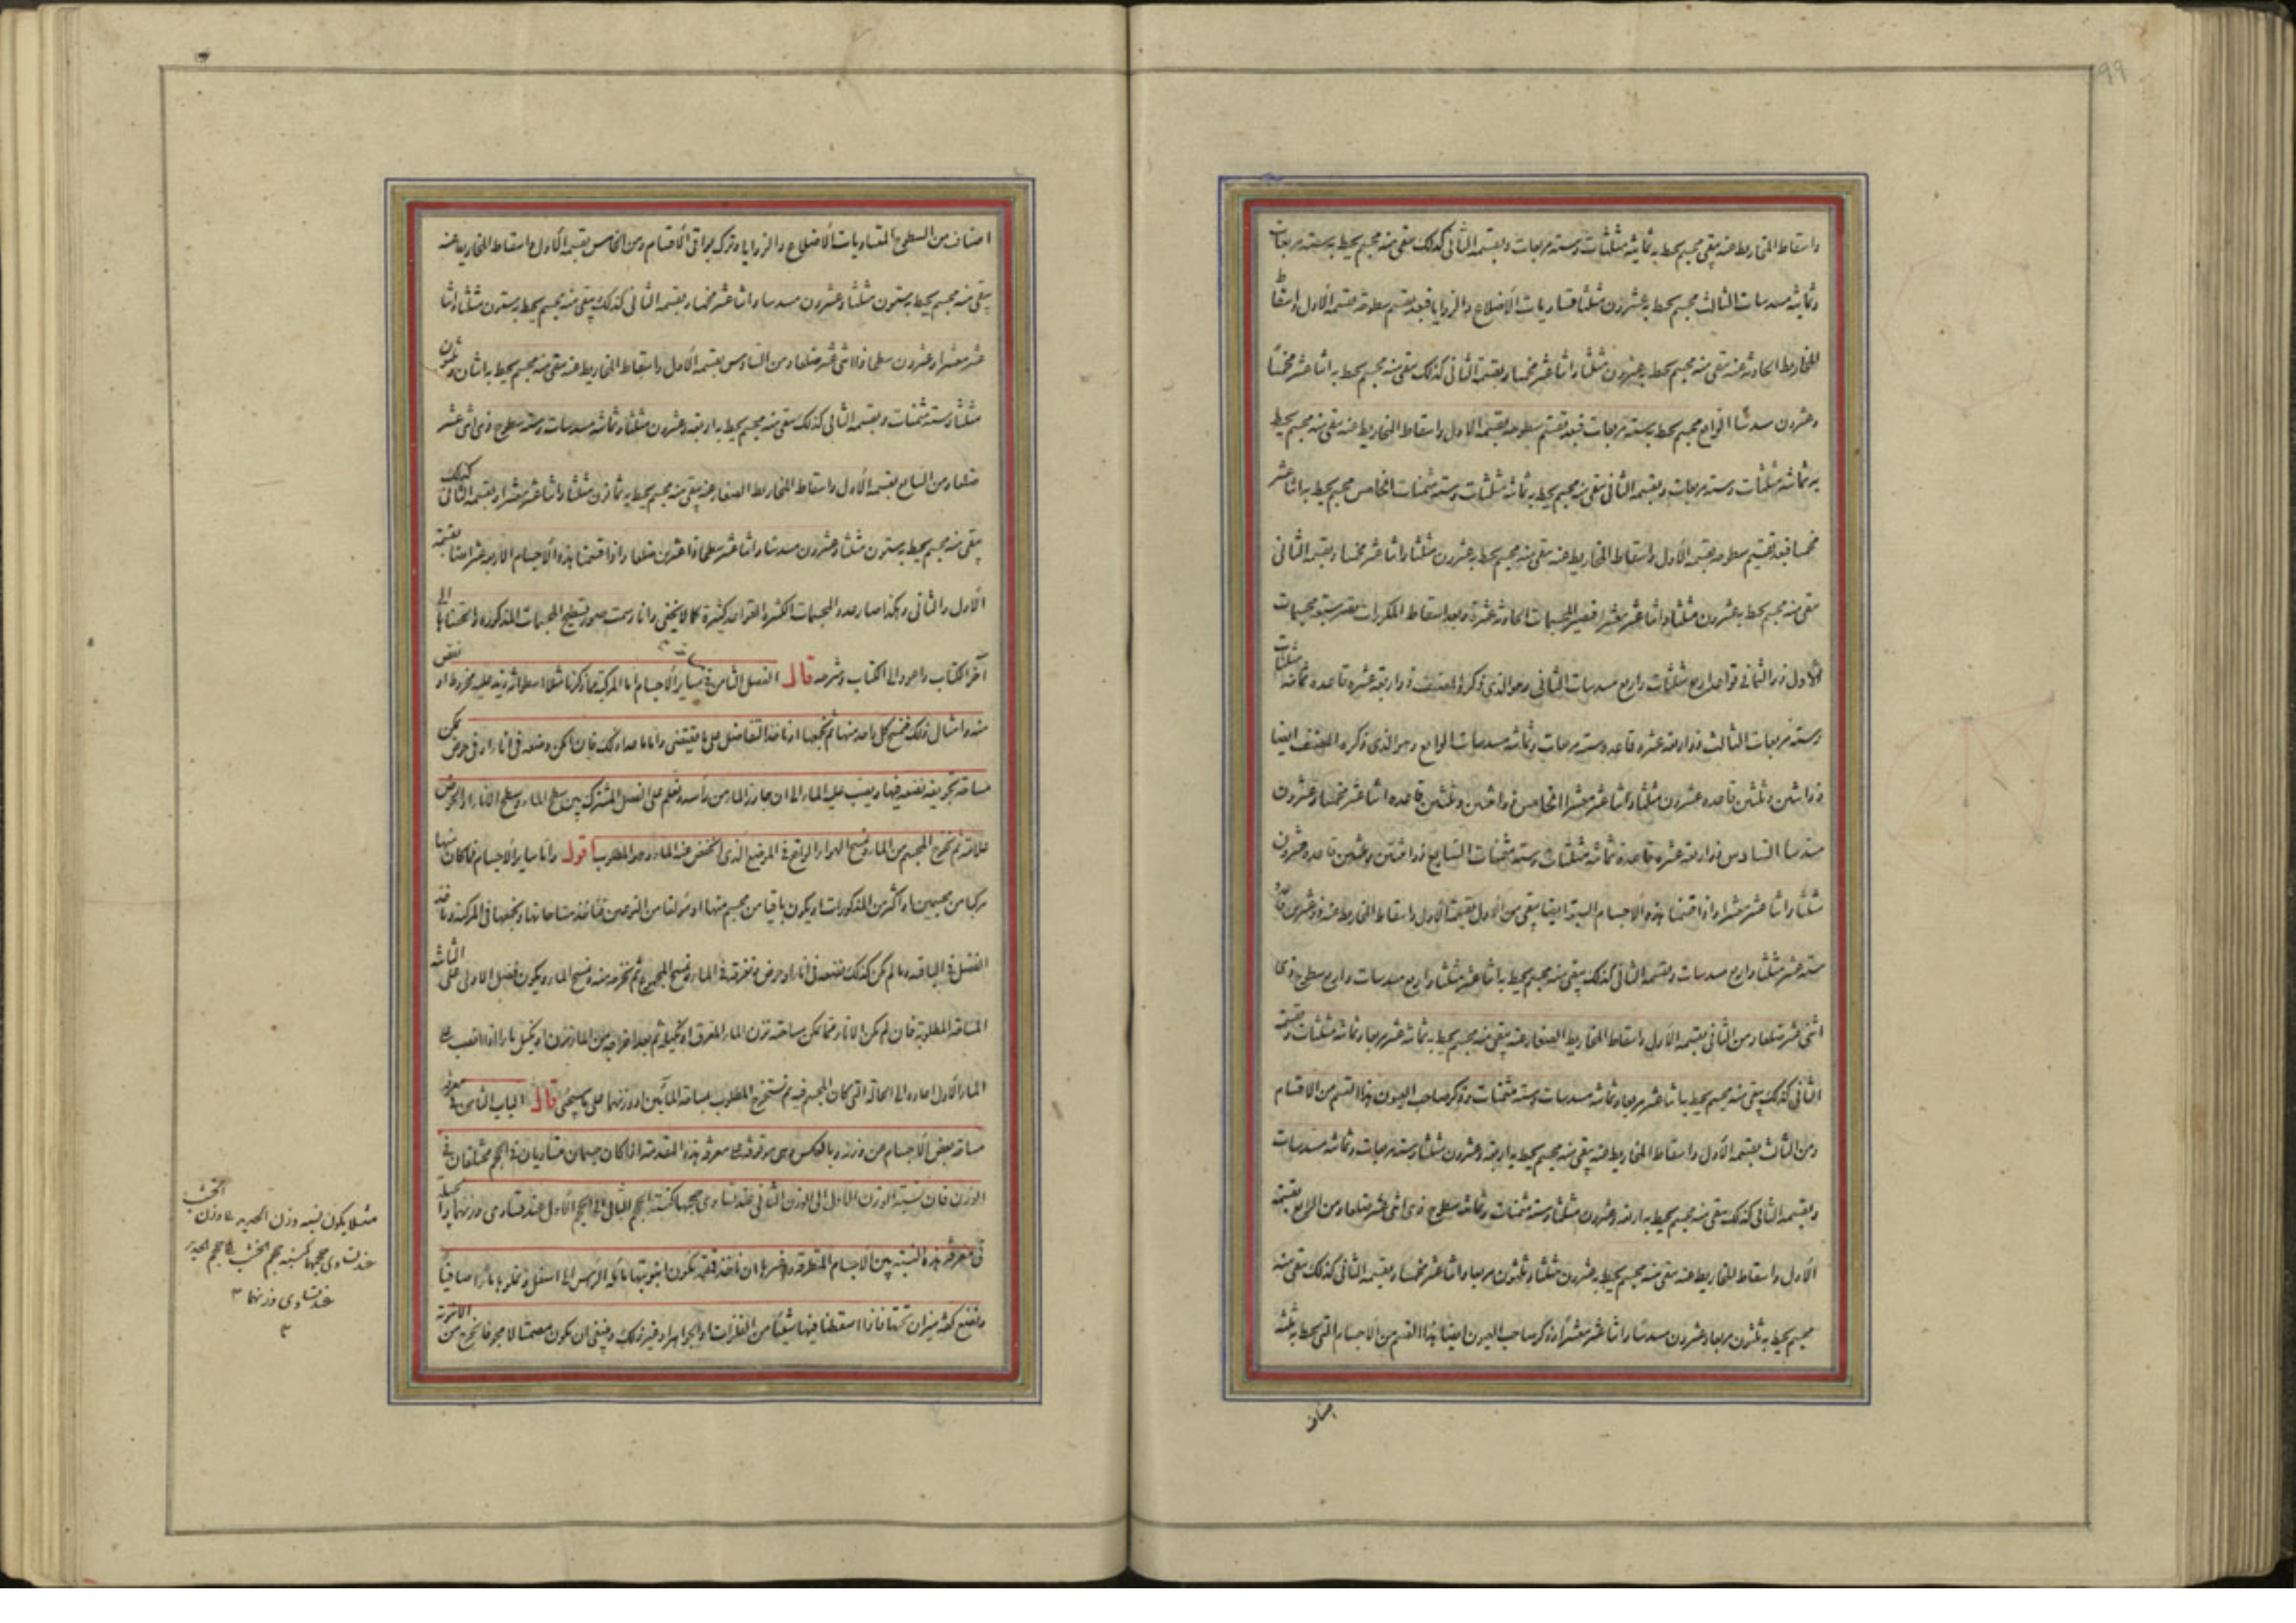 واسقاط المخاريط عنه يبقى مجسم يحيط به ثمانية مثلثات وستة مربعات وبقسمة الثانى كذلك يبقى منه مجسم يحيط به ستة مربعات
وثمانية مسدسات الثالث مجسم يحيط به عشرون مثلثا متساويات الأضلاع والزوايا فبعد تقسيم سطوحه بقسمة الأول واسقاط
المخاريط الحادثة عنه يبقى منه مجسم يحيط به عشرون مثلثا واثنا عشر مخمسا وبقسمة الثانى كذلك يبقى منه مجسم يحيط به اثنا عشر مخمسا
وعشرون مسدسا الرابع مجسم يحيط به ستة مربعات فبعد تقسيم سطوحه بقسمة الأول واسقاط المخاريط عنه يبقى منه مجسم يحيط
به ثمانية مثلثات وستة مربعات وبقسمة الثانى يبقى منه مجسم يحيط به ثمانية مثلثات وستة مثمنات الخامس مجسم يحيط به اثنا عشر
مخمسا فبعد تقسيم سطوحه بقسمة الأول واسقاط المخاريط عنه يبقى منه مجسم يحيط به عشرون مثلثا واثنا عشر مخمسا وبقسمة الثانى
يبقى منه مجسم يحيط به عشرون مثلثا واثنا عشر معشرا فيصير المجسمات الحادثة عشرة وبعد اسقاط المكررات يبقى سبعة مجسمات
الأول ذو الثمانى قواعد اربع مثلثات واربع مسدسات الثانى وهو الذى ذكره المصنف ذو اربعة عشره قاعده ثمانية مثلثات
وستة مربعات الثالث ذو اربعة عشره قاعده ستة مربعات وثمانية مسدسات الرابع وهو الذى ذكره المصنف ايضا
ذو اثنين وثلثين قاعده عشرون مثلثا واثنا عشر معشرا الخامس ذو اثنين وثلثين قاعده اثنا عشر مخمسا وعشرون
مسدسا السادس ذو اربعة عشره قاعدة ثمانية مثلثات وستة مثمنات السابع ذو اثنين وثلثين قاعده عشرون
مثلثا واثنا عشر معشرا واذا قسمنا هذه الأجسام السبعة ايضا يبقى من الأول بقسمة الأول واسقاط المخاريط عنه ذو عشرين قاعده
ستة عشر مثلثا واربع مسدسات وبقسمة الثانى كذلك يبقى منه مجسم يحيط به اثنا عشر مثلثا واربع مسدسات واربع سطوح ذوى
اثنى عشر ضلعا ومن الثانى بقسمة الأول واسقاط المخاريط الصغار عنه يبقى منه مجسم يحيط به ثمانية عشر مربعا وثمانية مثلثات وبقسمة
الثانى كذلك يبقى منه مجسم يحيط به اثنا عشر مربعا وثمانية مسدسات وستة مثمنات وذكر صاحب العيون هذا القسم من الاقسام
ومن الثالث بقسمة الأول واسقاط المخاريط عنه يبقى منه مجسم يحيط به اربعة وعشرون مثلثا وستة مربعات وثمانية مسدسات
وبقسمة الثانى كذلك يبقى منه مجسم يحيط به اربعة وعشرون مثلثا وستة مثمنات وثمانية سطوح ذوى اثنى عشر ضلعا ومن الرابع بقسمة
الأول واسقاط المخاريط عنه يبقى منه مجسم يحيط به عشرون مثلثا وثلثون مربعا واثنا عشر مخمسا وبقسمة الثانى كذلك يبقى منه
مجسم يحيط به ثلثون مربعا وعشرون مسدسا واثنا عشر معشرا وذكر صاحب العيون ايضا هذا القسم من الاجسام التى يحيط به ثلثة
اصناف
اصناف من السطوح المتساويات الأضلاع والزوايا وترك بواقى الأقسام ومن الخامس بقسمة الأول واسقاط المخاريط عنه
يبقى منه مجسم يحيط به ستون مثلثا وعشرون مسدسا واثنا عشر مخمسا وبقسمة الثانى كذلك يبقى منه مجسم يحيط به ستون مثلثا واثنا
عشر معشرا وعشرون سطحا ذا اثنى عشر ضلعا ومن السادس بقسمة الأول واسقاط المخاريط عنه يبقى منه مجسم يحيط به اثنان وثلثون
مثلثا وستة مثمنات وبقسمة الثانى كذلك يبقى منه مجسم يحيط به اربعة وعشرون مثلثا وثمانية مسدسات وستة سطوح ذوى اثنى عشر
ضلعا ومن السابع بقسمة الأول واسقاط المخاريط الصغار عنه يبقى منه مجسم يحيط به ثمانون مثلثا واثنا عشر معشرا وبقسمة الثانى كذلك
يبقى منه مجسم يحيط به ستون مثلثا وعشرون مسدسا واثنا عشر سطحا ذا عشرين ضلعا واذا قسمنا هذه الأجسام الاربعة عشر ايضا بقسمة
الأول والثانى وهكذا صار عدد المجسمات الكثيرة القواعد كثيرة كما لا يخفى وانا رسمت صور تسطيح المجسمات المذكوره والحقتها الى
آخر الكتاب واعود الى الكتاب وشرحه قال الفصل الثامن فى ساير الأجسام اما المركبة مما ذكرنا مثلا اسطوانة زيد عليه مخروط او نقص
منه وامثال ذلك فنمسح كل واحد منها ثم نجمعها او نأخذ التفاضل على ما يقتضى واما ما عدا ذلك فان امكن وضعه فى اناء او فى حوض يمكن
مساحة تجويفه نضعه فيها ويصب عليه الماء الى ان جاوز الماء من رأسه ونعلم على الفصل المشترك بين سطح الماء وسطح الأناء او الحوض
علامة ثم نخرج المجسم من الماء ونمسح الهواء الواقع فى الموضع الذى انخفض عنه الماء وهو المطلوب اقول واما ساير الأجسام فما كان منها
مركبا من مجسمين او اكثر من المذكورات او يكون باقيا من مجسم منها او مؤلفا من النوعين فنأخذ مساحاتها ونجمعها فى المركبة ونأخذ
الفضل فى الباقية وما لم يكن كذلك فنضعه فى اناء او حوض ونغرقه فى الماء ونمسح المجموع ثم نخرجه منه ونمسح الماء ويكون فضل الاولى على الثانية
المساحة المطلوبة فان لم يكن الاناء مما يمكن مساحته نزن الماء المغرق او نكيله ثم بعد اخراجه من الماء نزن او نكيل ماء اذا انصب على
الماء الأول اعاده الى الحالة التى كان المجسم فيه ثم نستخرج المطلوب بمساحة المائين او وزنهما على ما سيجئ قال الباب الثامن فى معرفة
مساحة بعض الاجسام من وزنه وبالعكس وهى موقوفة على معرفة هذه المقدمة اذا كان جسمان متساويان فى الحجم مختلفان فى
الوزن فان نسبة الوزن الاول الى الوزن الثانى عند تساوى حجمها كنسبة الحجم الثانى الى الحجم الأول عند تساوى وزنهما
فى معرفة هذه النسبة بين الأجسام المتطرقة وغيرها ان نأخذ قمقمة يكون انبوبتها مائلة الرأس الى اسفل ونملوها ماء صافيا
ونضع كفة ميزان تحتها فاذا اسقطنا فيها شيئا من الفلزات او الجواهر او غير ذلك وينبغى ان يكون مصمتا لا مجوفا يخرج من الانبوبة
مثلا يكون نسبة وزن الحديد الى وزن الخشب
عند تساوى حجمهما كنسبة حجم الخشب الى حجم الحديد
عند تساوى وزنهما